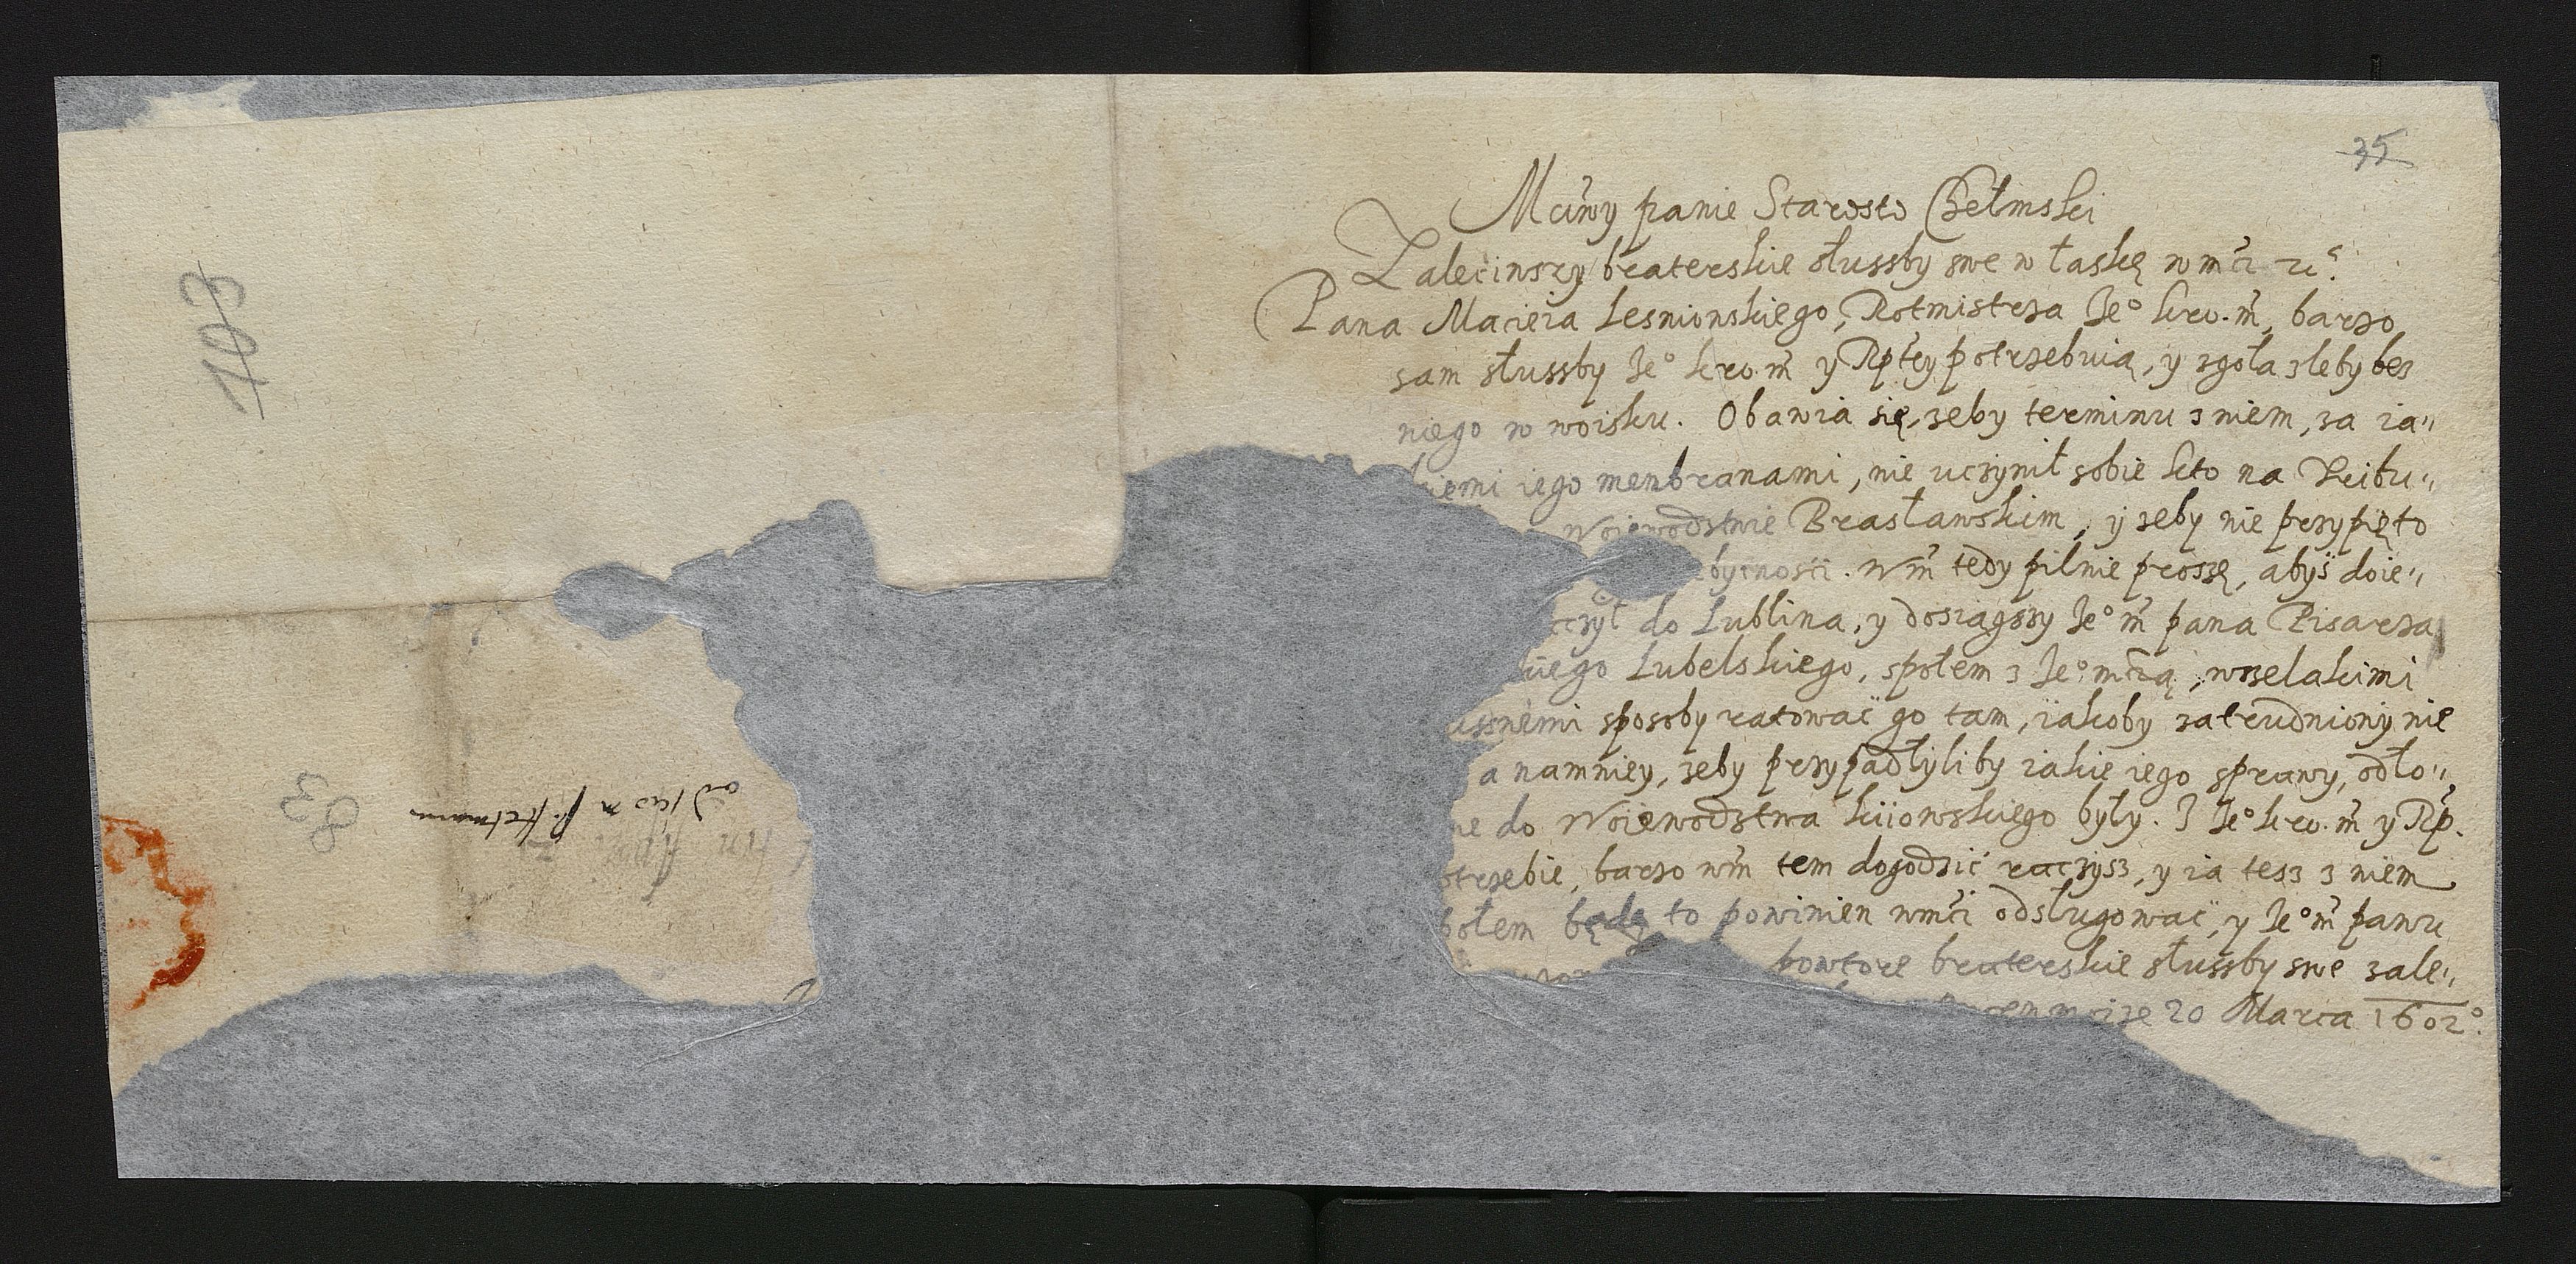 35
Mciwy panie Starosto Chełmski
Zaleciwszy braterskie słussby swe w łaskę w mći
Pana Macieia Lesniowskiego, Rotmistrza Je° kro. m̃, barzo
sam słussby Je° kro. m̃ y Rptey potrzebuią, y zgoła zleby bez
niego w woisku. Obawia się, zeby terminu z niem, za ia„
kiemi iego menbranami, nie uczynił sobie kto na Tribu„
Woiewodstwie Brasławskim, y zeby nie przypięto
bytnosci. Wm̃ tedy pilnie proszę, abyś doie„
czył do Lublina, y dosiągszy Je° m̃ pana Pisarza
kiego Lubelskiego, społem z Je° mczią, wszelakimi
ussnemi sposoby ratować go tam, iakoby zatrudniony nie
a namniey, zeby przypadłyliby iakie iego sprawy, odło„
ne do Woiewodstwa kiiowskiego były. I Je° kro. m̃ y Rp.
otrzebie, barzo wm̃ tem dogodzić raczysz, y ia tesz z niem
społem będę to powinien wmći odsługować, y Je° m̃ panu
powtore braterskie słussby swe zale„
20 Marca 1602°.
103
83
od p. Hetmana